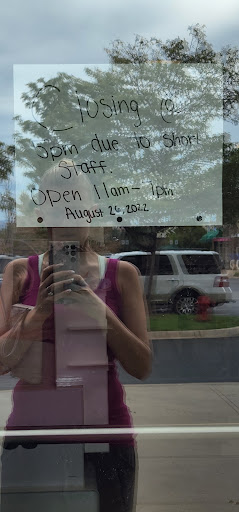 Closing @
5pm due to short
Staff.
Open 11am - 1pm
August 26 2022